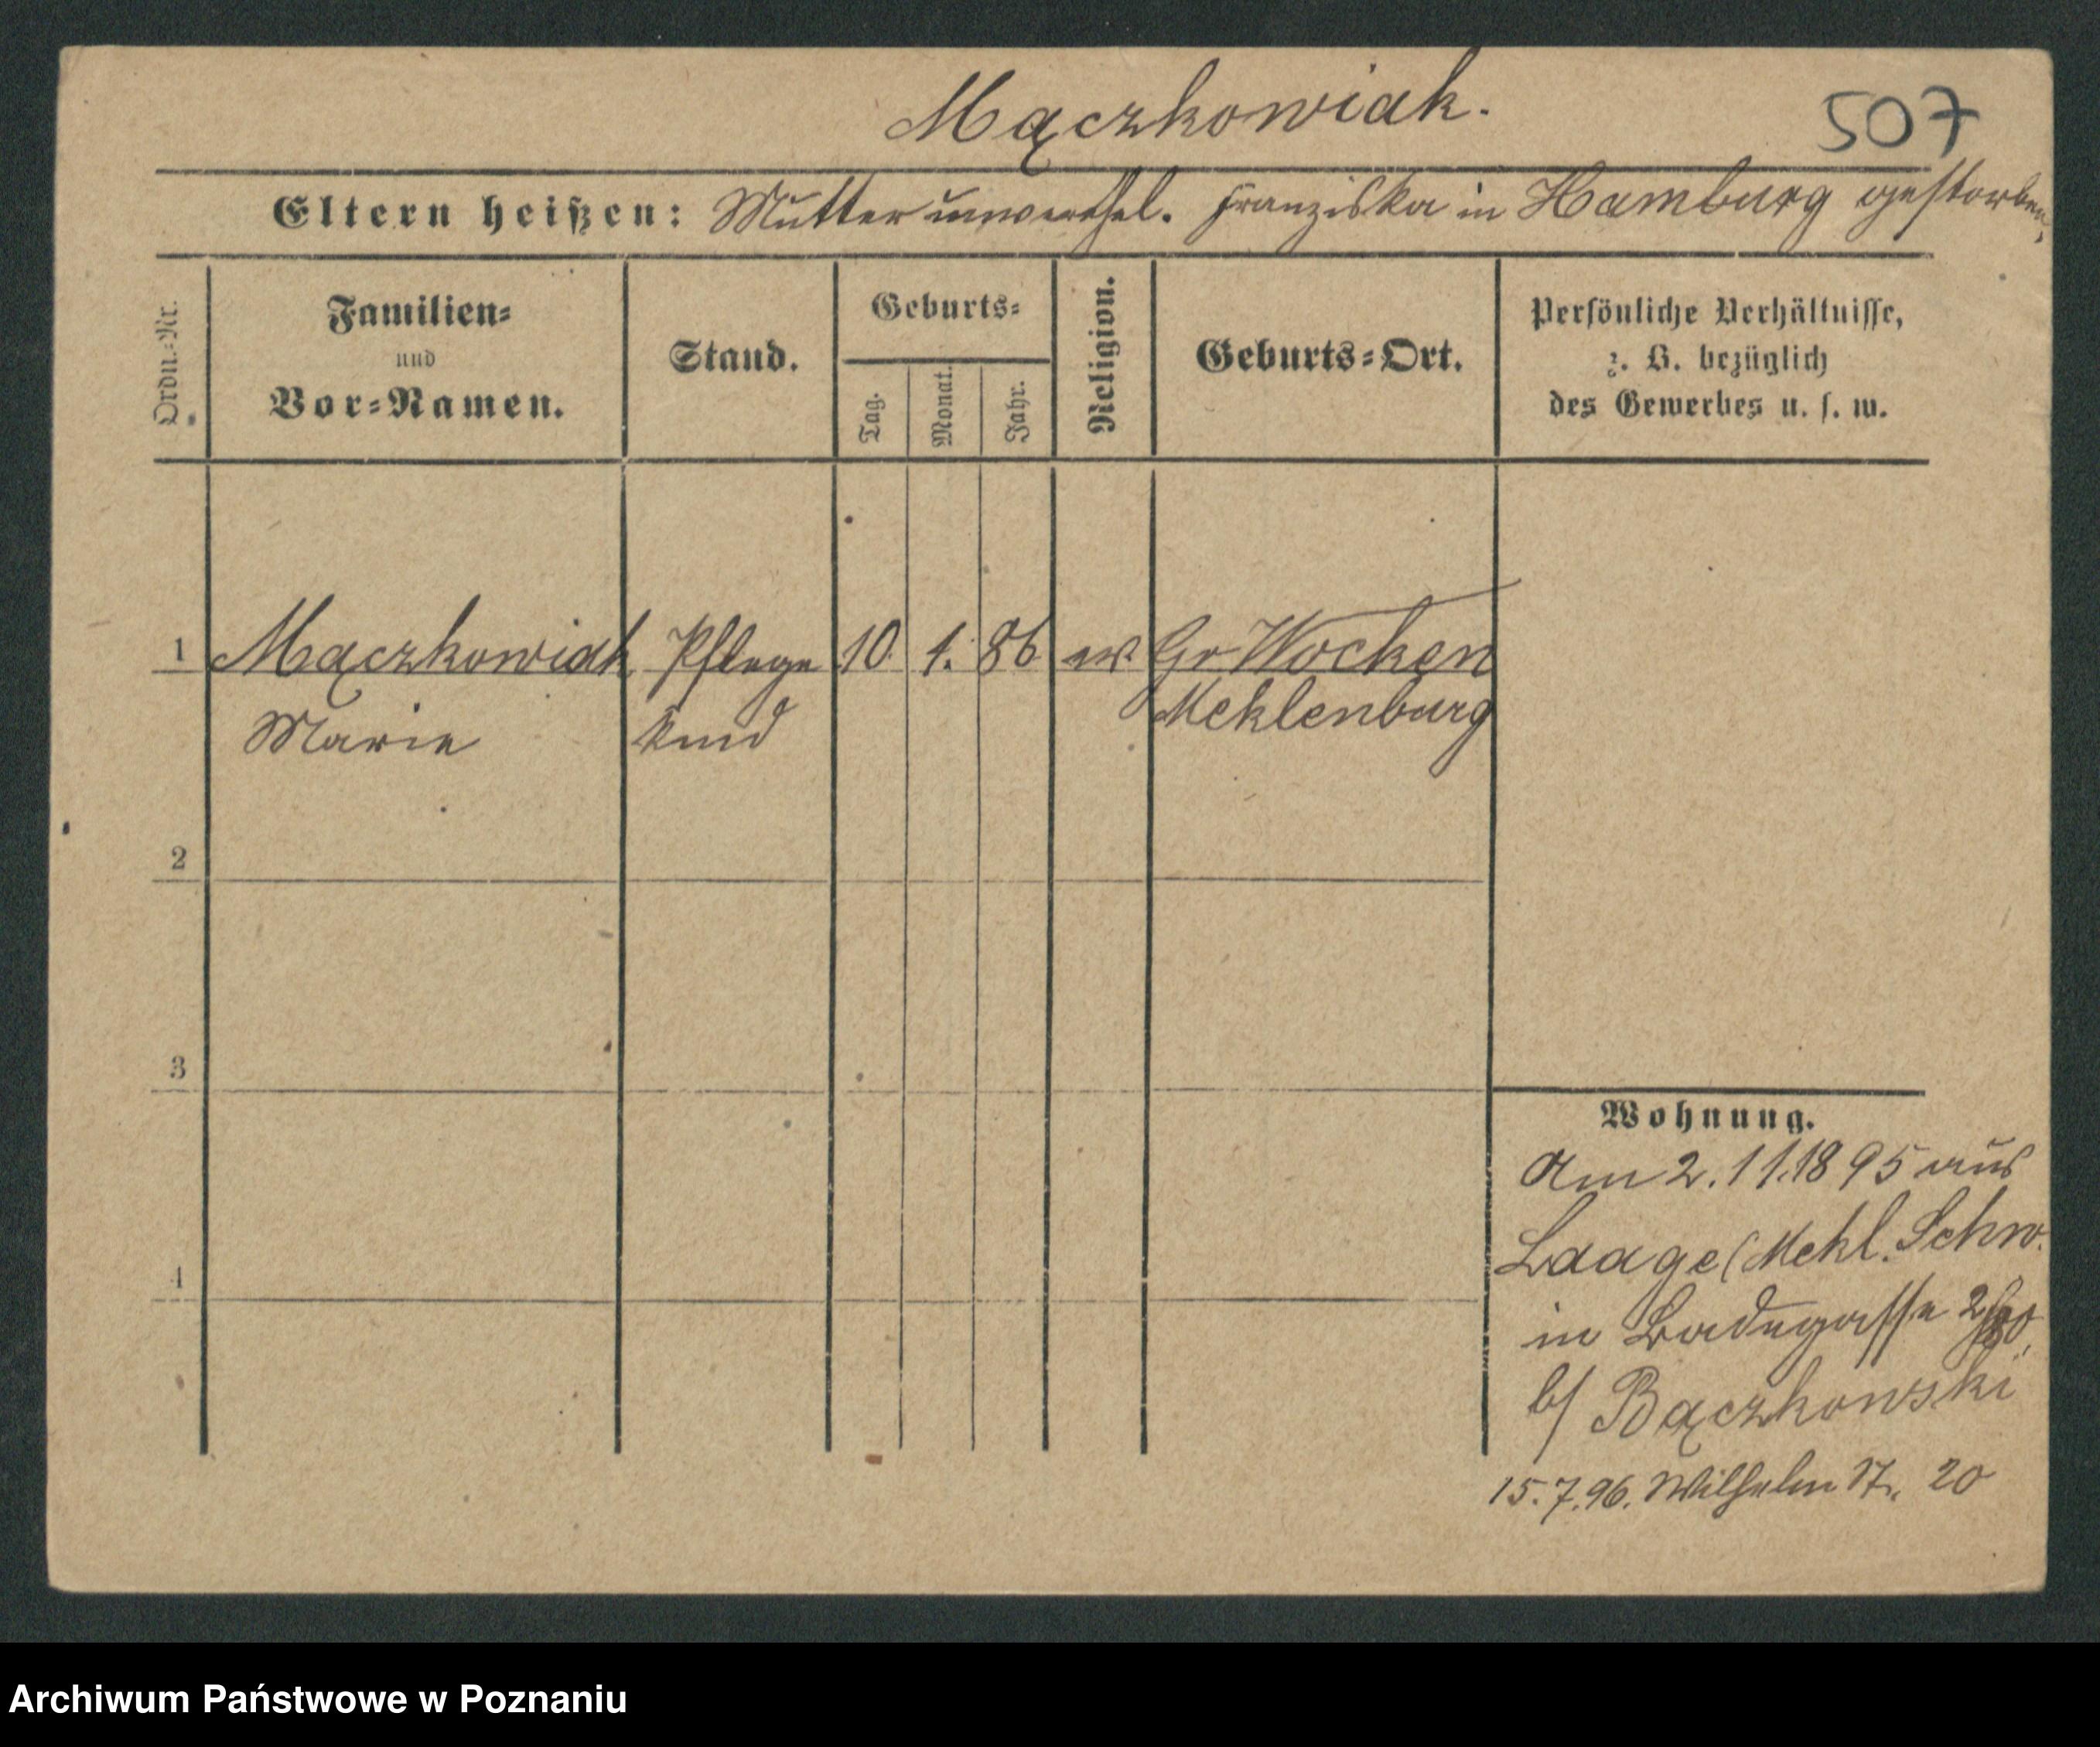 Mączkowiak.
507
Eltern heißen: Mutter unverehel. Franziska in Hamburg gestorben,
Ordn.-Nr.
Familien-
und
Vor-Namen.
Stand.
Geburts-
Tag.
Monat.
Jahr.
Religion.
Geburts-Ort.
Persönliche Verhältnisse,
z. B. bezüglich
des Gewerbes u. s. w.
1 Mączkowiak Pflege 10. 1. 86 ev. Gr Wocken
Marie kind Meklenburg
2
3
4
Wohnung.
Am 2.11.1895 aus
Laage (Mekl. Schw.
in Badegasse
b/ Bączkowski
15.7.96. Wilhelm St. 20
Archiwum Państwowe w Poznaniu